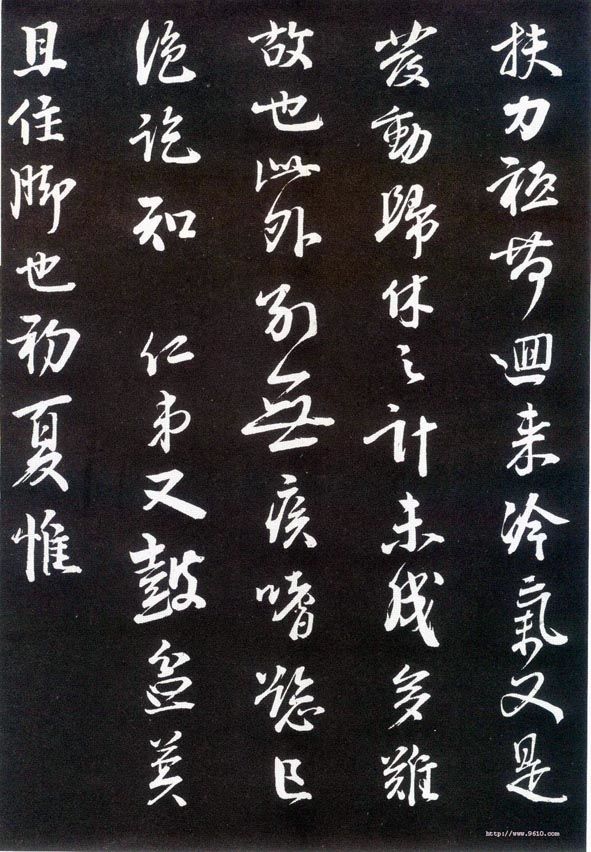 扶力迴来冷氣又是
發動歸休之計未成多難
故也此外別無疾嗜慾已
絶訖知 仁弟又鼓盆莫
且住脚也初夏惟
http://www.9610.com